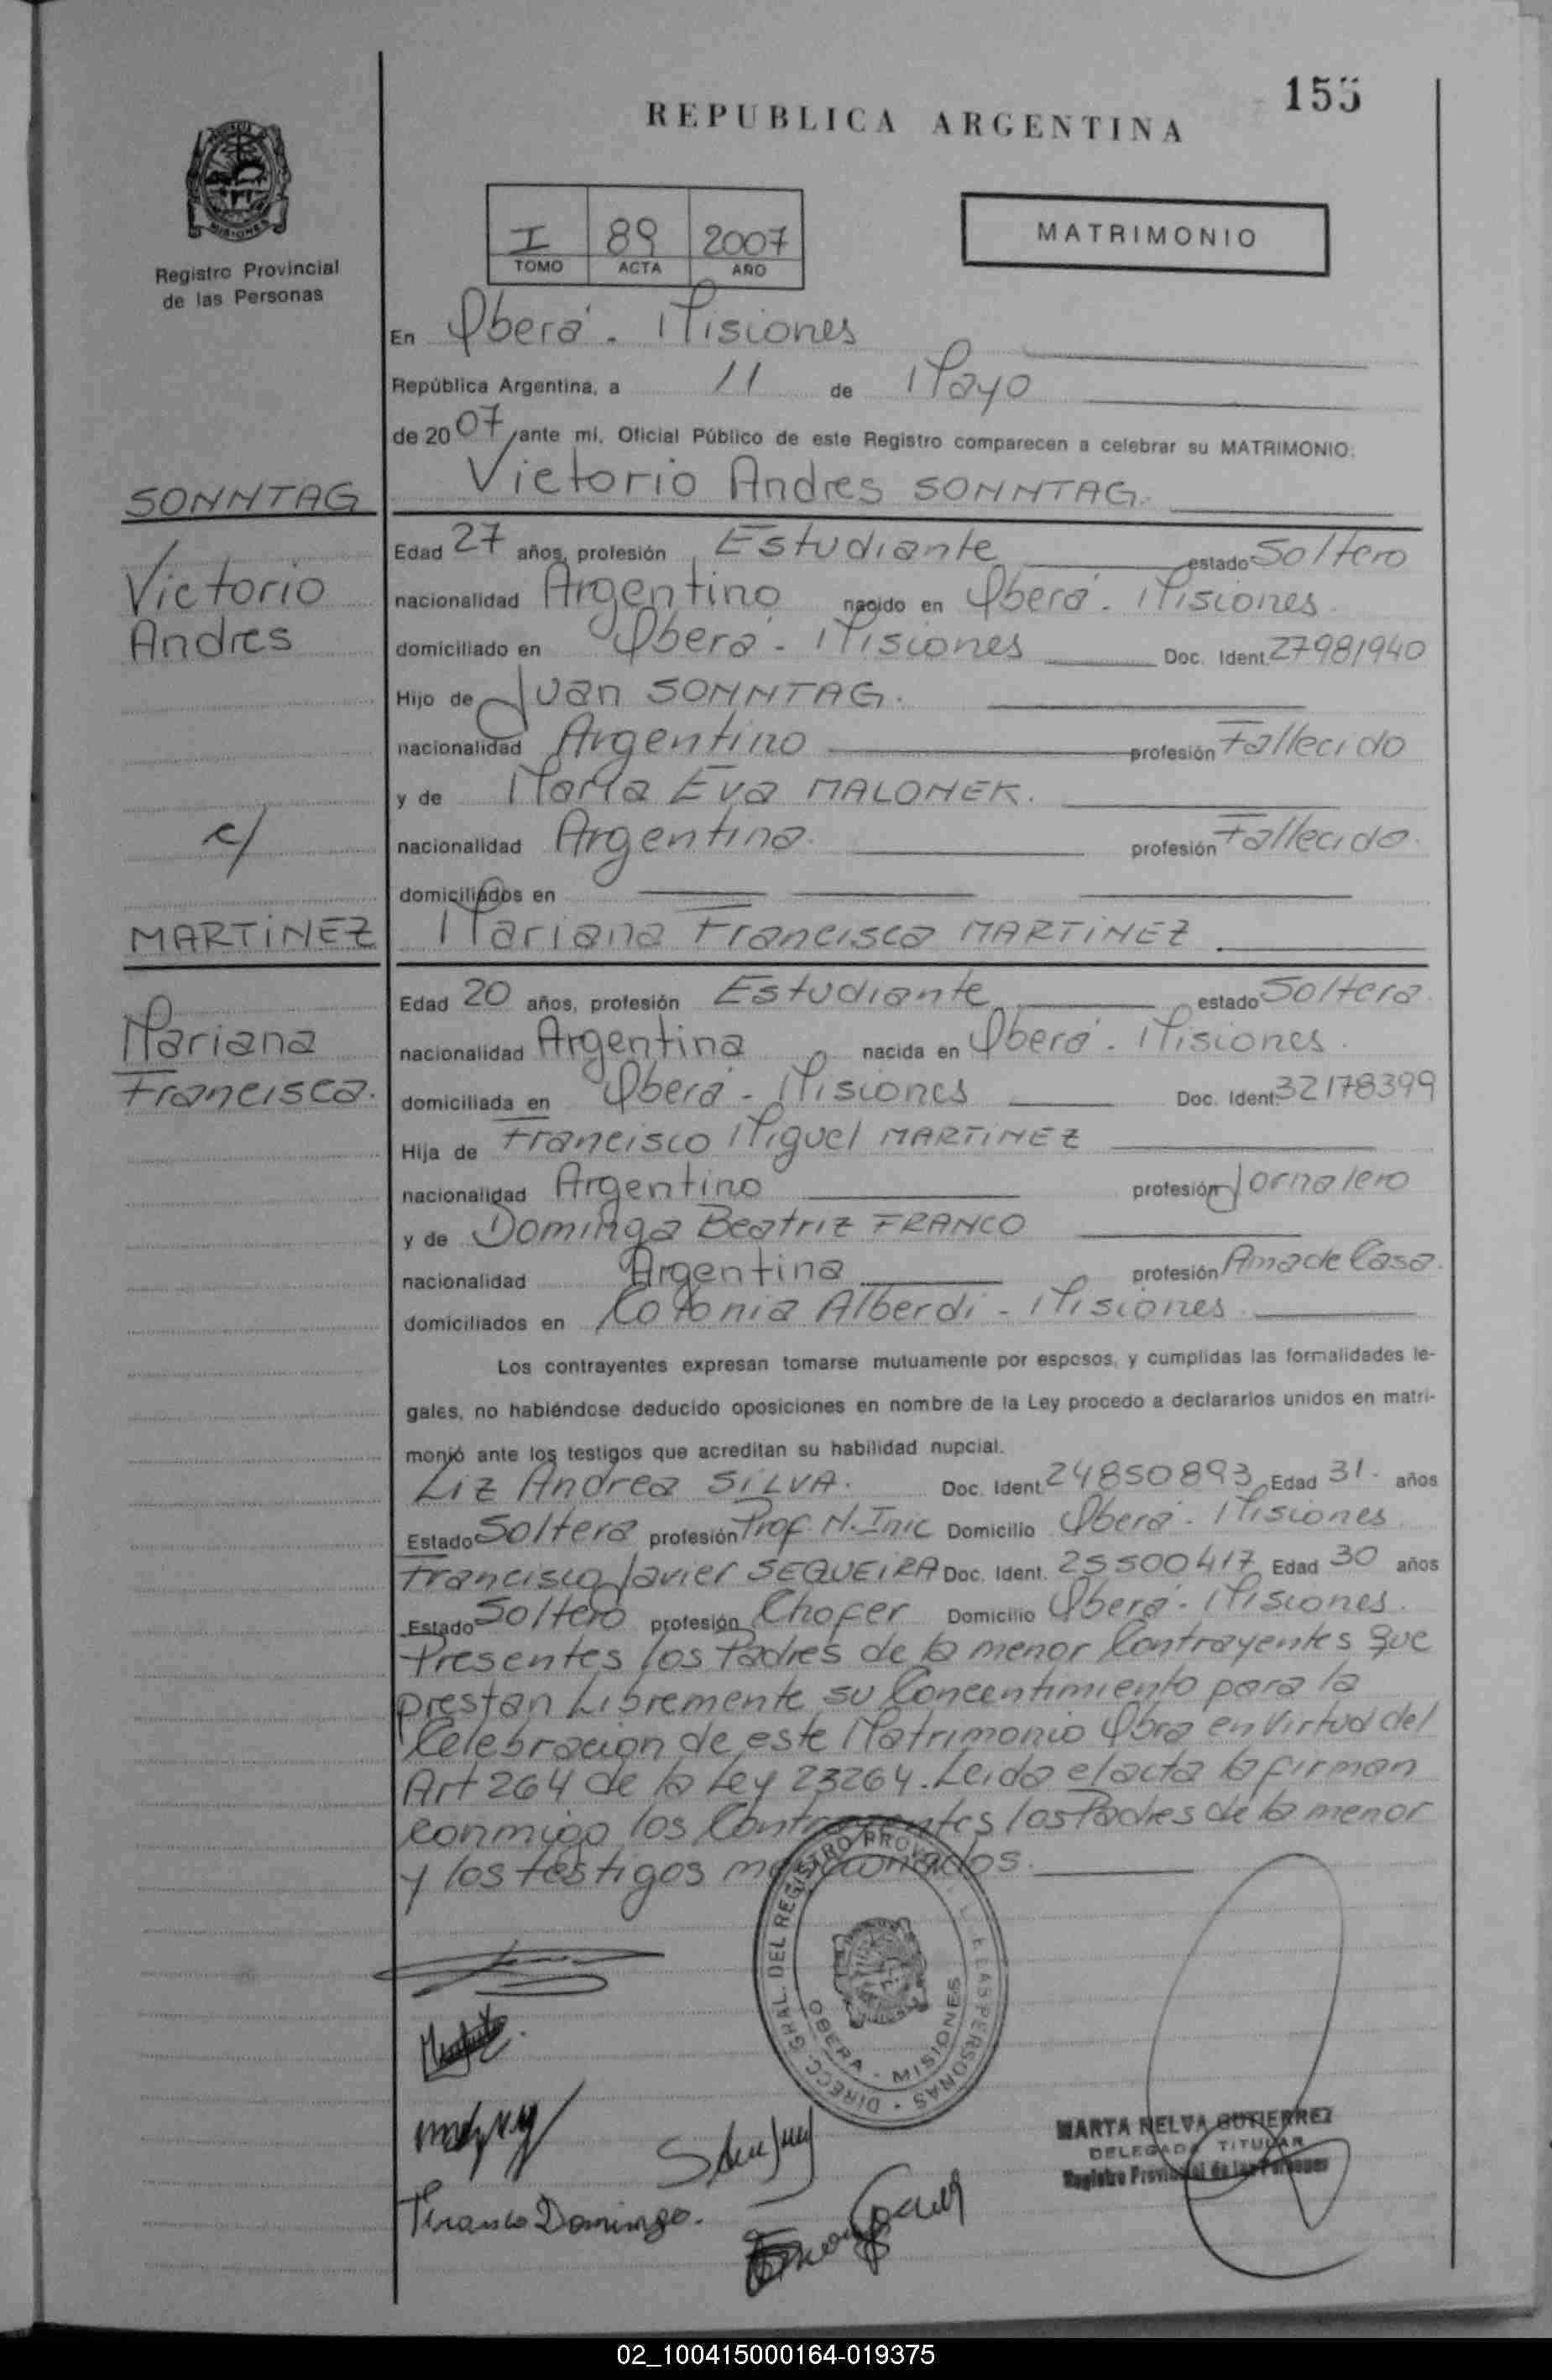 155
REPUBLICA ARGENTINA
MISIONES
Registro Provincial
de las Personas
I 89 2007
TOMO ACTA AÑO
MATRIMONIO
En Oberá - Misiones
República Argentina, a 11 de Mayo
de 2007, ante mi, Oficial Público de este Registro comparecen a celebrar su MATRIMONIO:
SONNTAG
Victorio Andres SONNTAG.
Victorio
Andres
Edad 27 años, profesión Estudiante estado Soltero
nacionalidad Argentino nacido en Oberá - Misiones
domiciliado en Oberá - Misiones Doc. Ident. 27981940
Hijo de Juan SONNTAG.
nacionalidad Argentino profesión Fallecido
y de Maria Eva MALONEK.
c/
nacionalidad Argentina. profesión Fallecido.
domiciliados en
MARTINEZ
Mariana Francisca MARTINEZ
Mariana
Francisca.
Edad 20 años, profesión Estudiante estado Soltera
nacionalidad Argentina nacida en Oberá - Misiones.
domiciliada en Oberá - Misiones Doc. Ident. 32178399
Hija de Francisco Miguel MARTINEZ
nacionalidad Argentino profesión Jornalero
y de Dominga Beatriz FRANCO
nacionalidad Argentina profesión Ama de Casa.
domiciliados en Colonia Alberdi - Misiones
Los contrayentes expresan tomarse mutuamente por esposos, y cumplidas las formalidades le-
gales, no habiéndose deducido oposiciones en nombre de la Ley procedo a declararlos unidos en matri-
monió ante los testigos que acreditan su habilidad nupcial.
Liz Andrea SILVA. Doc. Ident. 24850893 Edad 31 años
Estado Soltera profesión Prof. N. Inic Domicilio Oberá - Misiones
Francisco Javier SEQUEIRA Doc. Ident. 25500417 Edad 30 años
Estado Soltero profesión Chofer Domicilio Oberá - Misiones.
Presentes los Padres de la menor Contrayentes que
prestan Libremente su Concentimiento para la
Celebracion de este Matrimonio Obra en Virtud del
Art 264 de la Ley 23264. Leida el acta la firman
conmigo los Contrayentes los Padres de la menor
y los testigos mencionados.
DIRECC. GRAL. DEL REGISTRO PROV. DE LAS PERSONAS
OBERA - MISIONES
MARTA NELVA GUTIERREZ
DELEGADA TITULAR
Registro Provincial de las Personas
Franco Dominga.
02_100415000164-019375